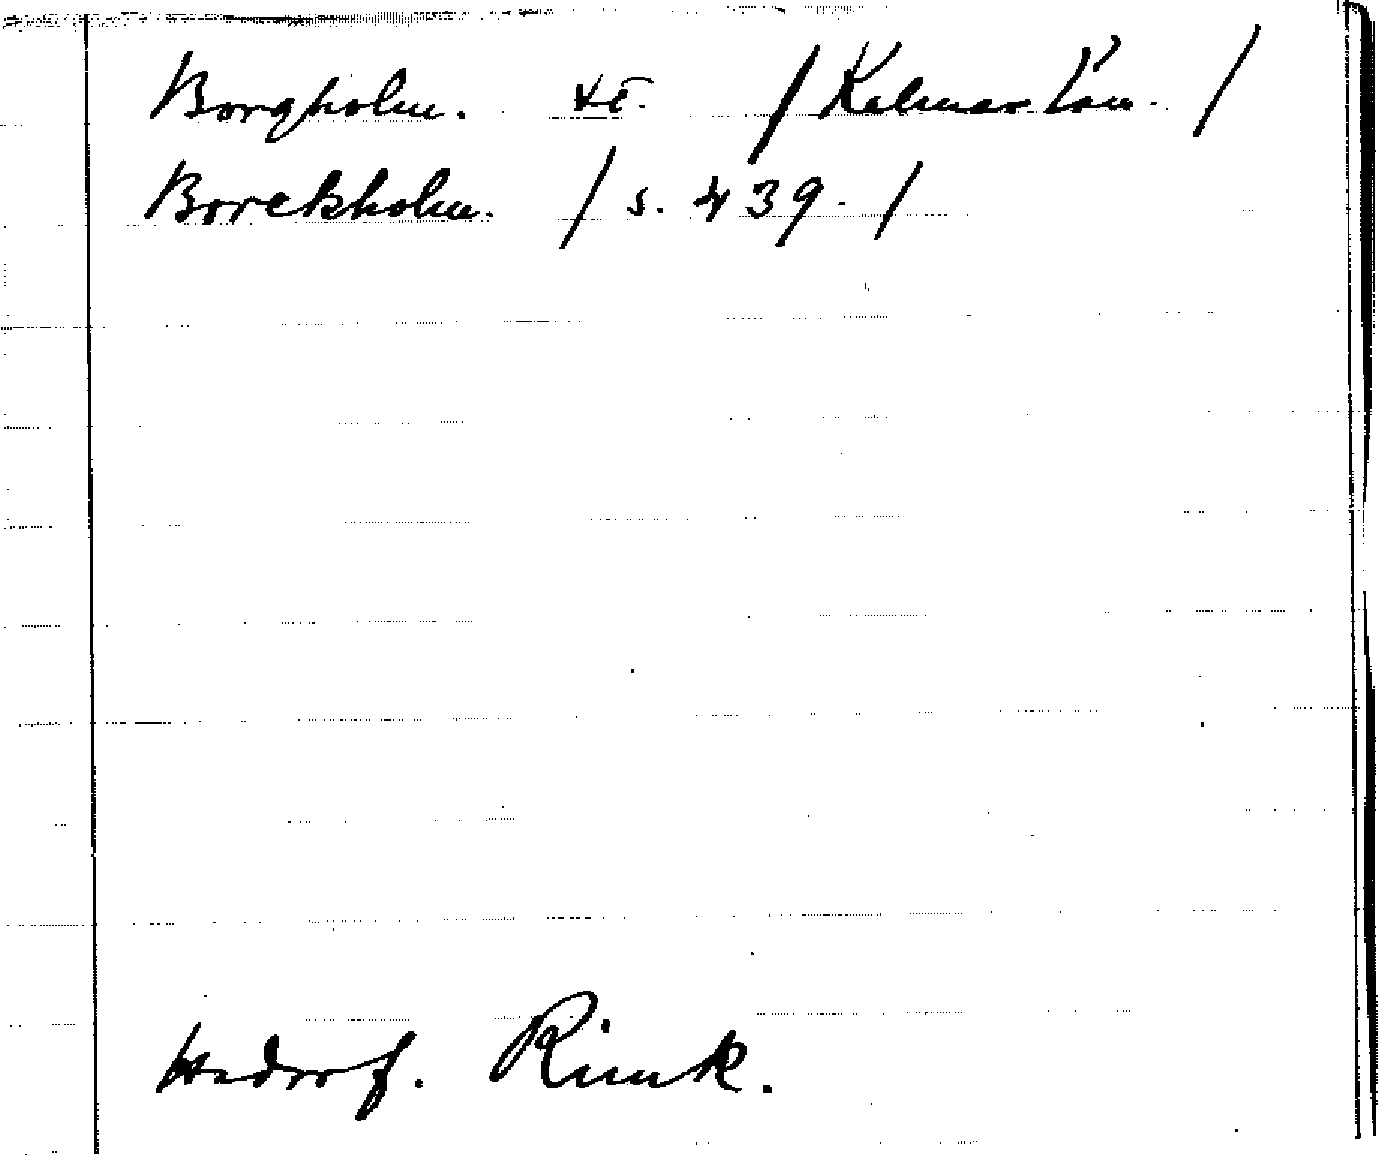 Borgholm. St. / Kalmar län. /
Borekholm. / s. 439. /
Hadorf. Rimk.